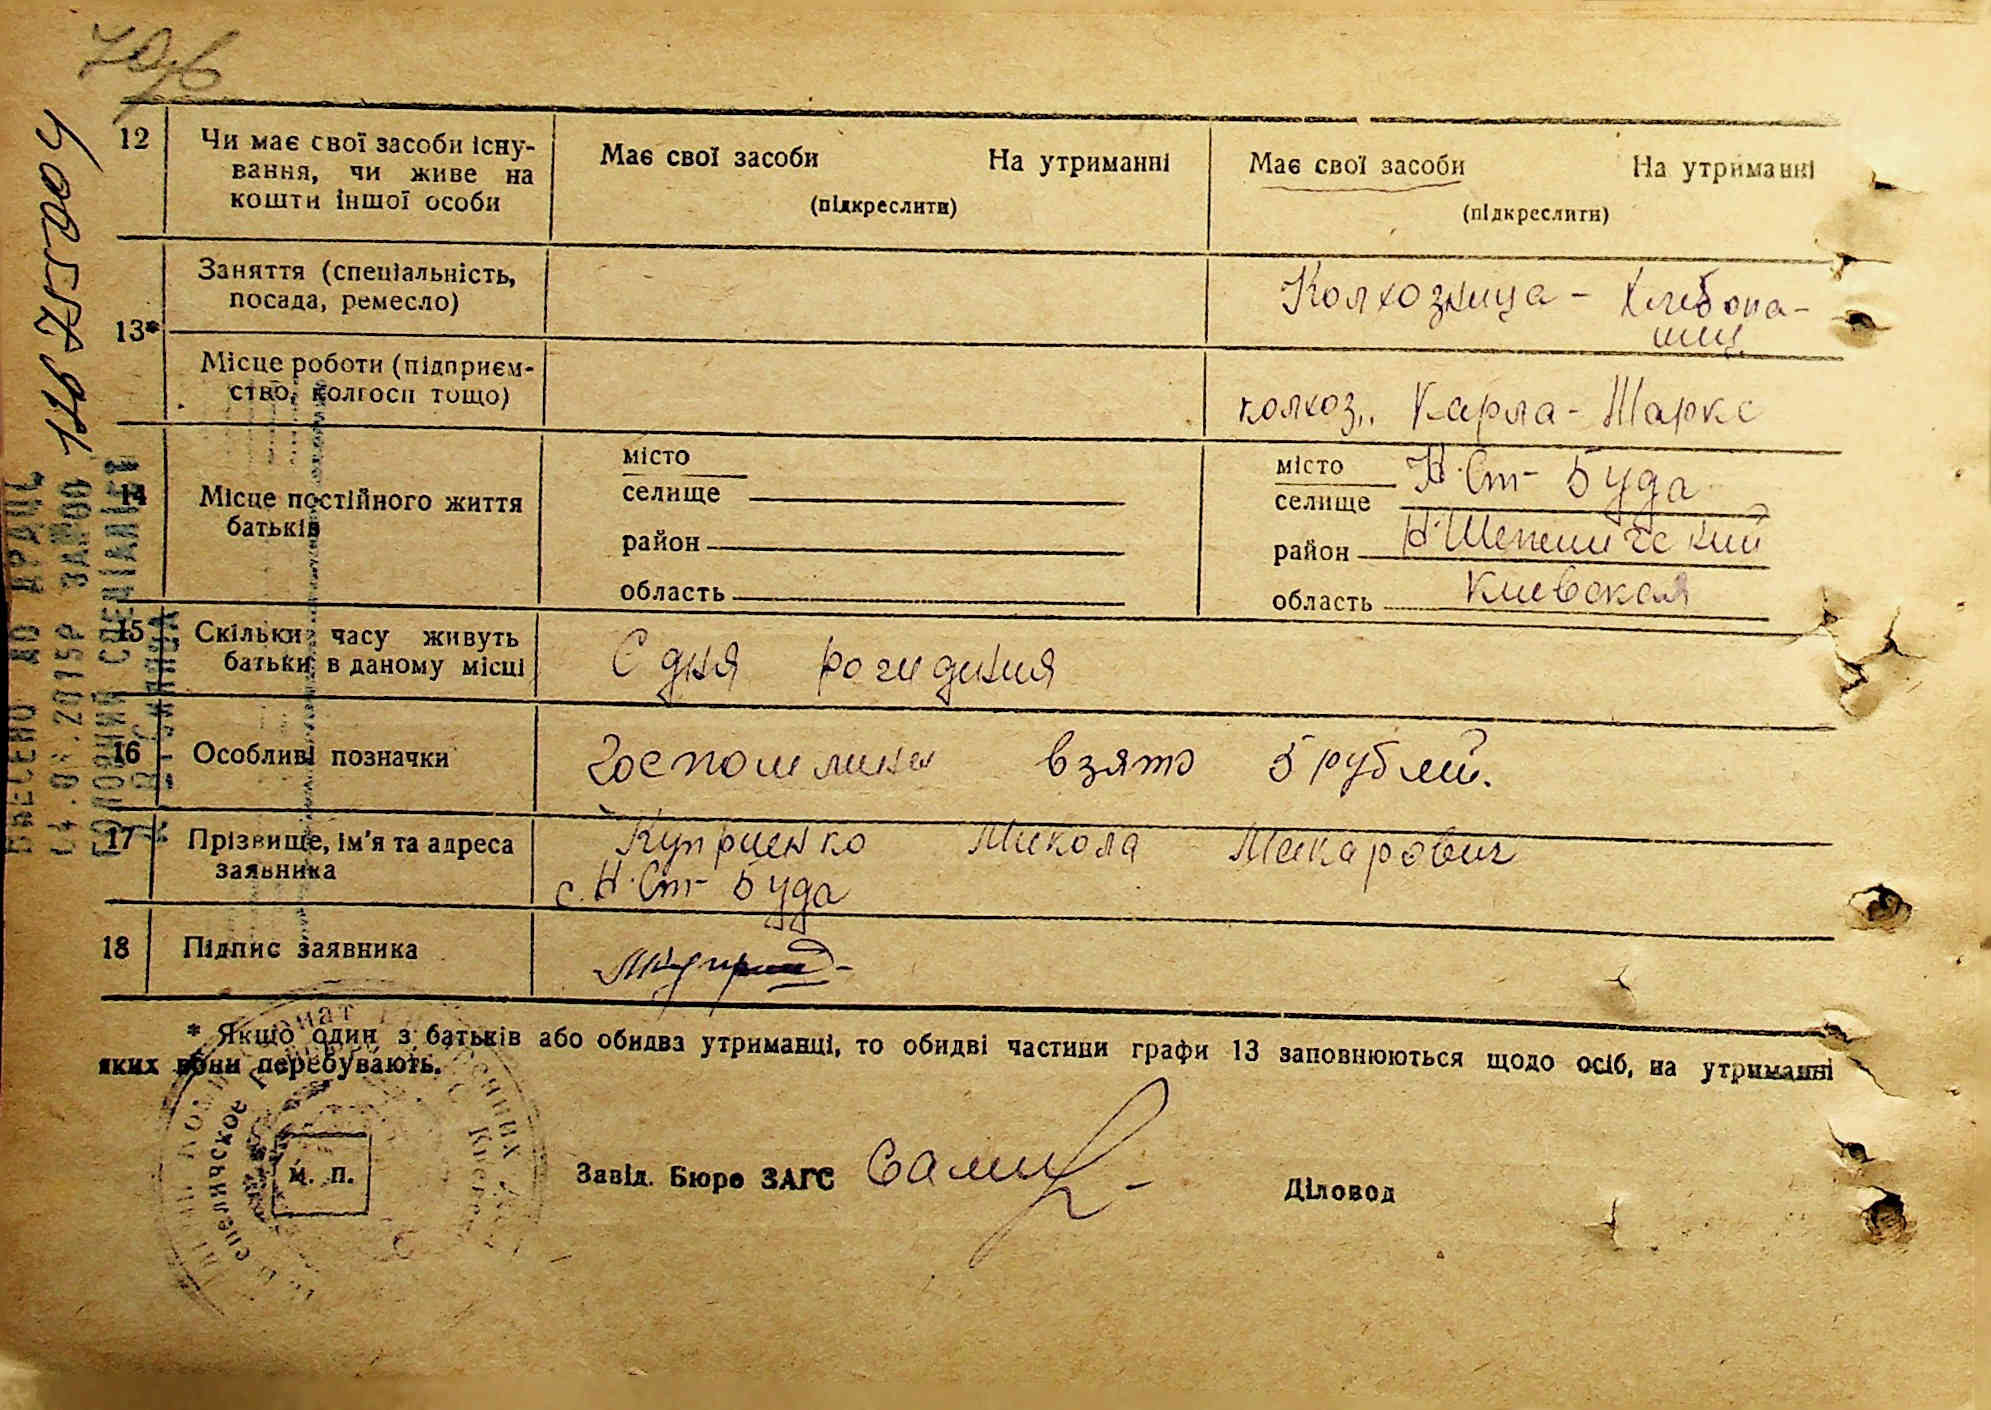 12
Чи має свої засоби існу-
вання, чи живе на
кошти іншої особи
Має свої засоби На утриманні
(підкреслити)
Має свої засоби На утриманні
(підкреслити)
13*
Заняття (спеціальність,
посада, ремесло)
Колхозница - Хлебопа-
шиц
Місце роботи (підприєм-
ство, колгосп тощо)
колхоз,, Карла-Маркс
14
Місце постійного життя
батьків
місто
селище
район
область
місто
селище
Н. Ст-Буда
район Н.Шепеличский
область Киевская
15
Скільки часу живуть
батьки в даному місці
С дня рождиния
16
Особливі позначки
Госпошлины взято 5 рублей.
17
Прізвище, ім'я та адреса
заявника
Куприенко Микола Макарович
с. Н. Ст-Буда
18
Підпис заявника
* Якщо один з батьків або обидва утриманці, то обидві частини графи 13 заповнюються щодо осіб, на утриманні
яких вони перебувають.
м. п.
Завід. Бюро ЗАГС
Діловод
ВНЕСЕНО ДО ДРАЦС
2015Р ЗА №00
ГОЛОВНИЙ СПЕЦІАЛІСТ